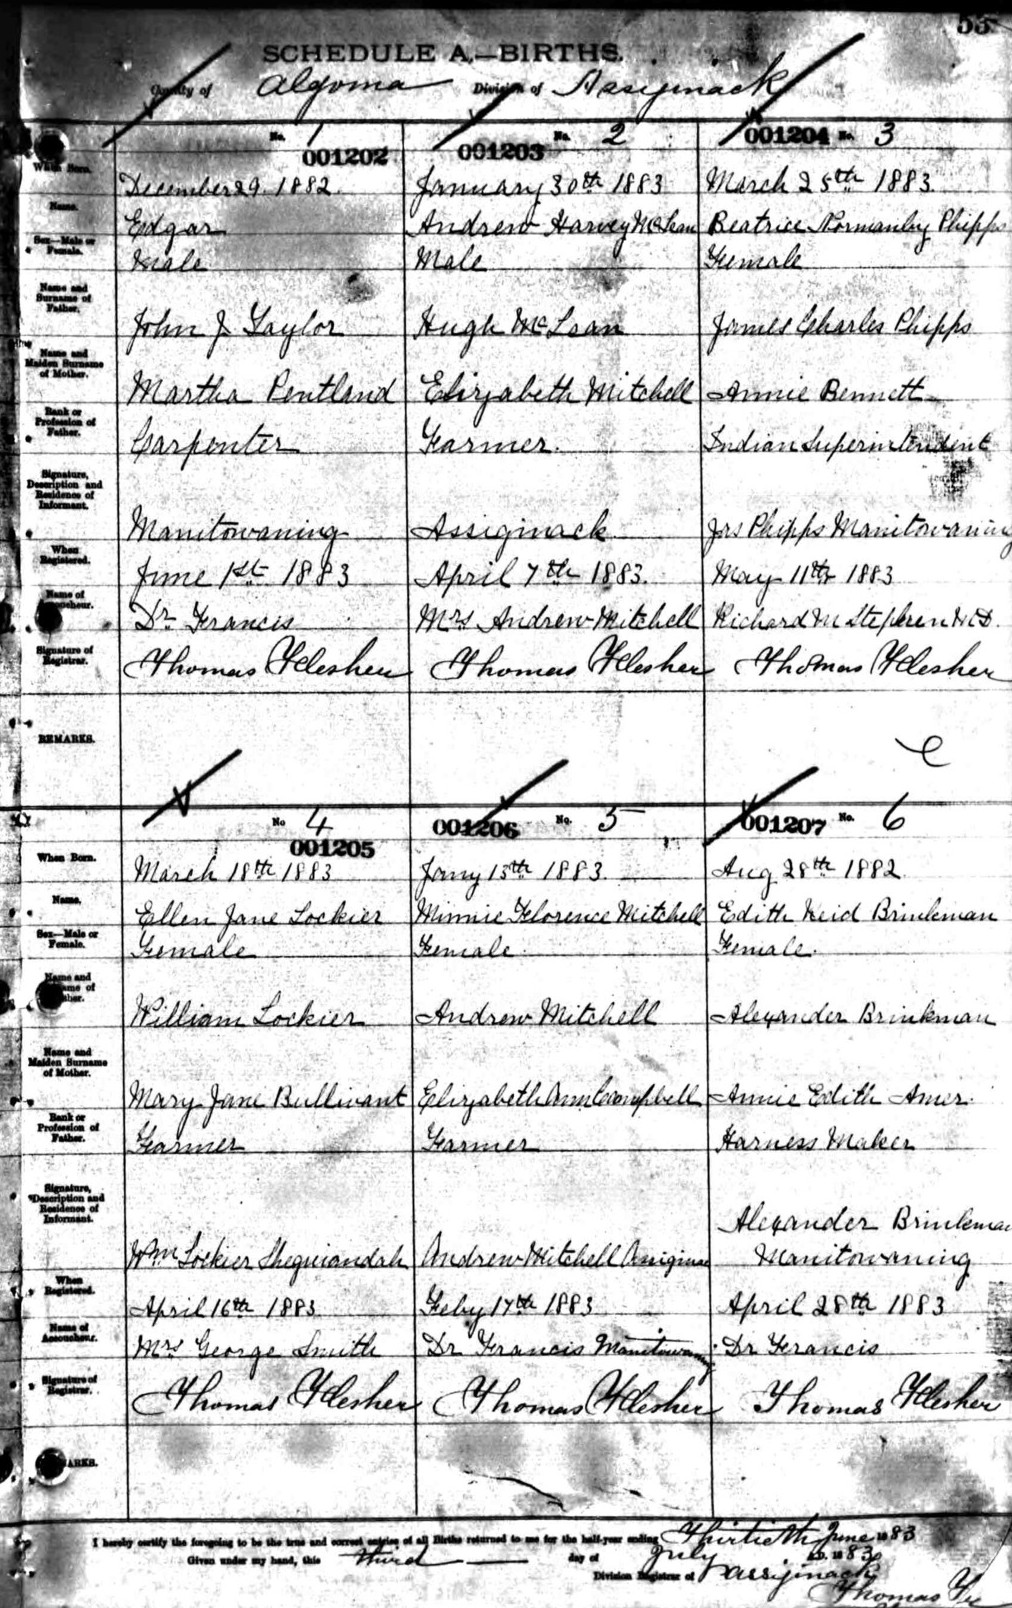 53
SCHEDULE A.—BIRTHS.
County of Algoma Division of Assiginack
No. 1 001202
001203 No. 2
001204 No. 3
When Born. December 29. 1882. January 30th 1883 March 25th 1883
Name. Edgar Andrew Harvey McLean Beatrice Normanby Phipps
Sex—Male or Female. Male Male Female
Name and Surname of Father. John J Taylor Hugh McLean James Charles Phipps
Name and Maiden Surname of Mother. Martha Pentland Elizabeth Mitchell Annie Bennett
Rank or Profession of Father. Carpenter Farmer. Indian Superintendent
Signature, Description and Residence of Informant. Manitowaning Assiginack Jas Phipps Manitowaning
When Registered. June 1st 1883 April 7th 1883. May 11th 1883
Name of Accoucheur. Dr Francis Mrs Andrew Mitchell Richard M Stephren M.D.
Signature of Registrar. Thomas Flesher Thomas Flesher Thomas Flesher
REMARKS.
No 4 001205
001206 No. 5
001207 No. 6
When Born. March 18th 1883 Jany 15th 1883. Aug 28th 1882
Name. Ellen Jane Lockier Minnie Florence Mitchell Edith Reid Brinkman
Sex—Male or Female. Female Female Female.
Name and Surname of Father. William Lockier Andrew Mitchell Alexander Brinkman
Name and Maiden Surname of Mother. Mary Jane Bullivant Elizabeth Ann Campbell Annie Edith Amer.
Rank or Profession of Father. Farmer Farmer Harness Maker
Signature, Description and Residence of Informant. Wm Lockier Sheguiandah Andrew Mitchell Alexander Brinkman
Manitowaning
When Registered. April 16th 1883 Feby 17th 1883 April 28th 1883
Name of Accoucheur. Mrs George Smith Dr Francis Manitowaning Dr Francis
Signature of Registrar. Thomas Flesher Thomas Flesher Thomas Flesher
REMARKS.
I hereby certify the foregoing to be the true and correct entries of all Births returned to me for the half-year ending Thirtieth June 1883
Given under my hand, this third day of July A.D. 1883
Division Registrar of Assiginack
Thomas